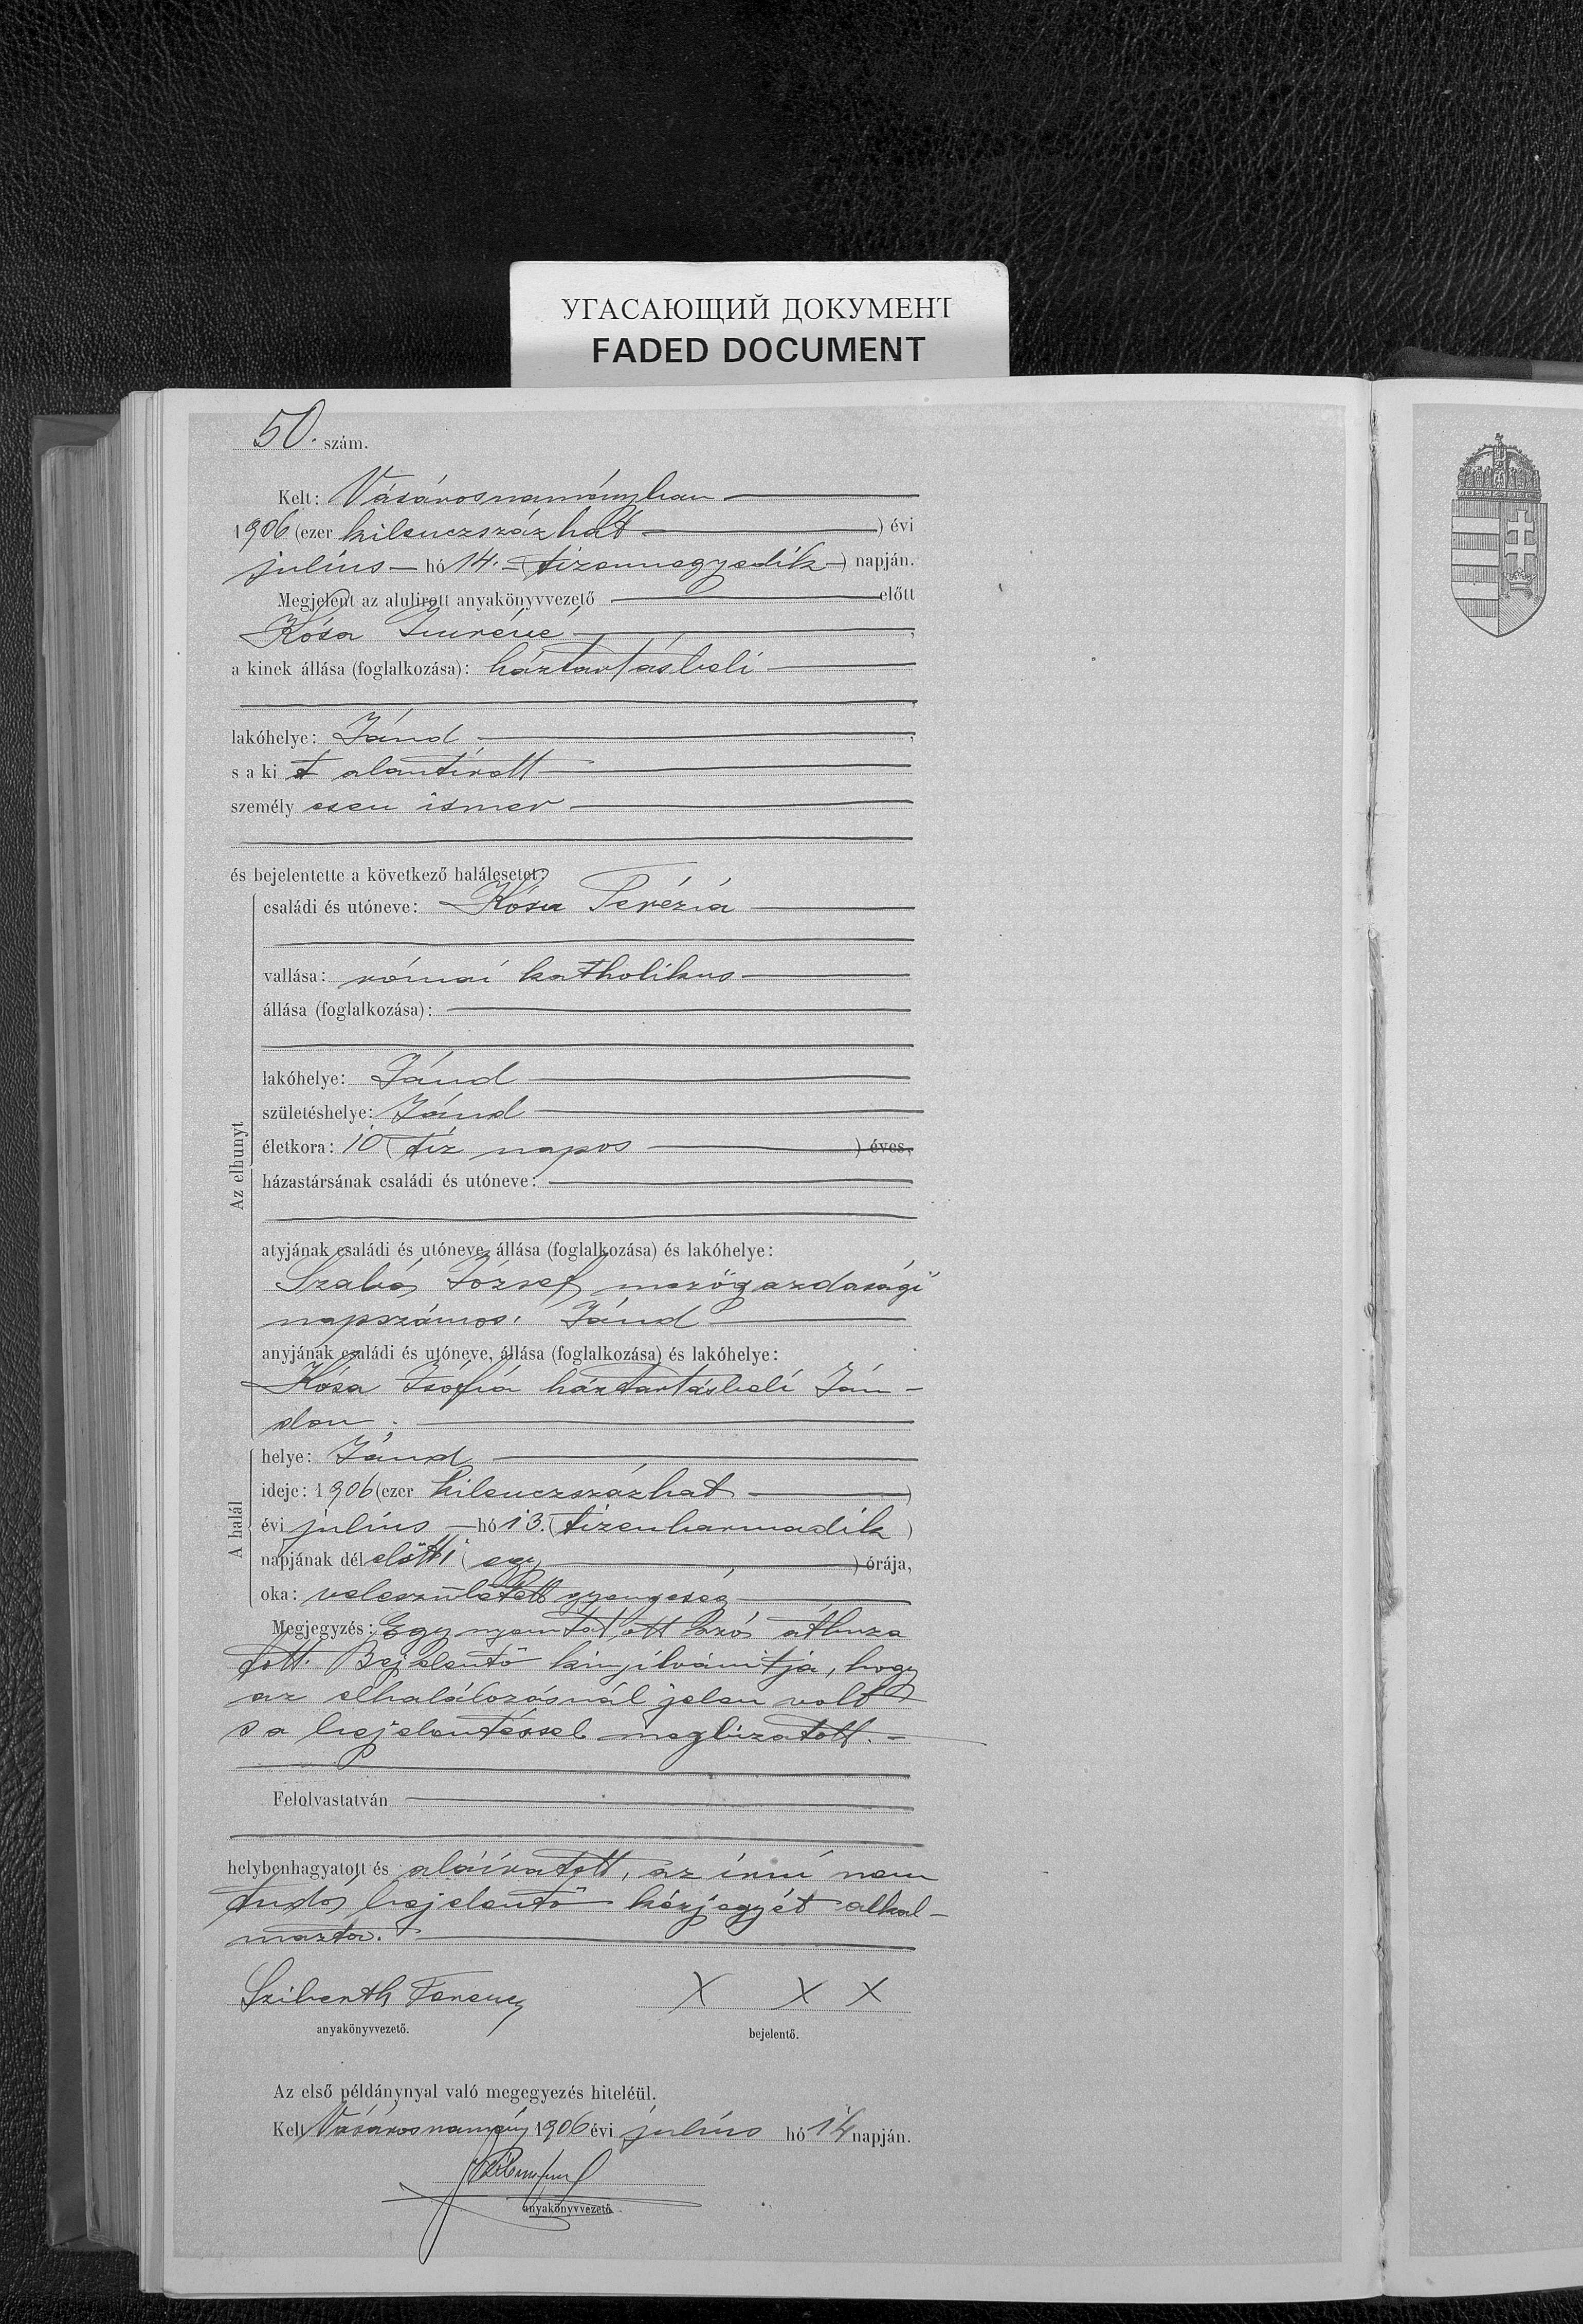 УГАСАЮЩИЙ ДОКУМЕНТ
FADED DOCUMENT
50. szám.
Kelt: Vásárosnaményban
1906 (ezer kilenczszázhat ) évi
július hó 14. (tizennegyedik) napján.
Megjelent az alulirott anyakönyvvezető előtt
Kósa Imréné ,
a kinek állása (foglalkozása): háztartásbeli
lakóhelye: Jánd ,
s a ki t alantirott
személy esen ismer
és bejelentette a következő halálesetet:
Az elhunyt
családi és utóneve: Kósa Terézia
vallása: római katholikus
állása (foglalkozása):
lakóhelye: Jánd
születéshelye: Jánd
életkora: 10 (tiz napos ) éves,
házastársának családi és utóneve:
atyjának családi és utóneve, állása (foglalkozása) és lakóhelye:
Szabó József mezőgazdasági
napszámos. Jánd
anyjának családi és utóneve, állása (foglalkozása) és lakóhelye:
Kósa Zsófia háztartásbeli Ján-
don.
A halál
helye: Jánd
ideje: 1906 (ezer kilenczszázhat )
évi július hó 13. (tizenharmadik )
napjának délelőtti ( egy ) órája,
oka: veleszületett gyengeség
Megjegyzés: Egy nyomtatott szó áthuza
tott. Bejelentő kinyilvánitja, hogy
az elhalálozásnál jelen volt
s a bejelentéssel megbizatott.-
Felolvastatván
helybenhagyatott és aláiratott, az irni nem
tudó bejelentő kézjegyét alkal-
mazta.
Ferencz X X X
anyakönyvvezető. bejelentő.
Az első példánynyal való megegyezés hiteléül.
Kelt Vásárosnamény 1906 évi július hó 14 napján.
anyakönyvvezető